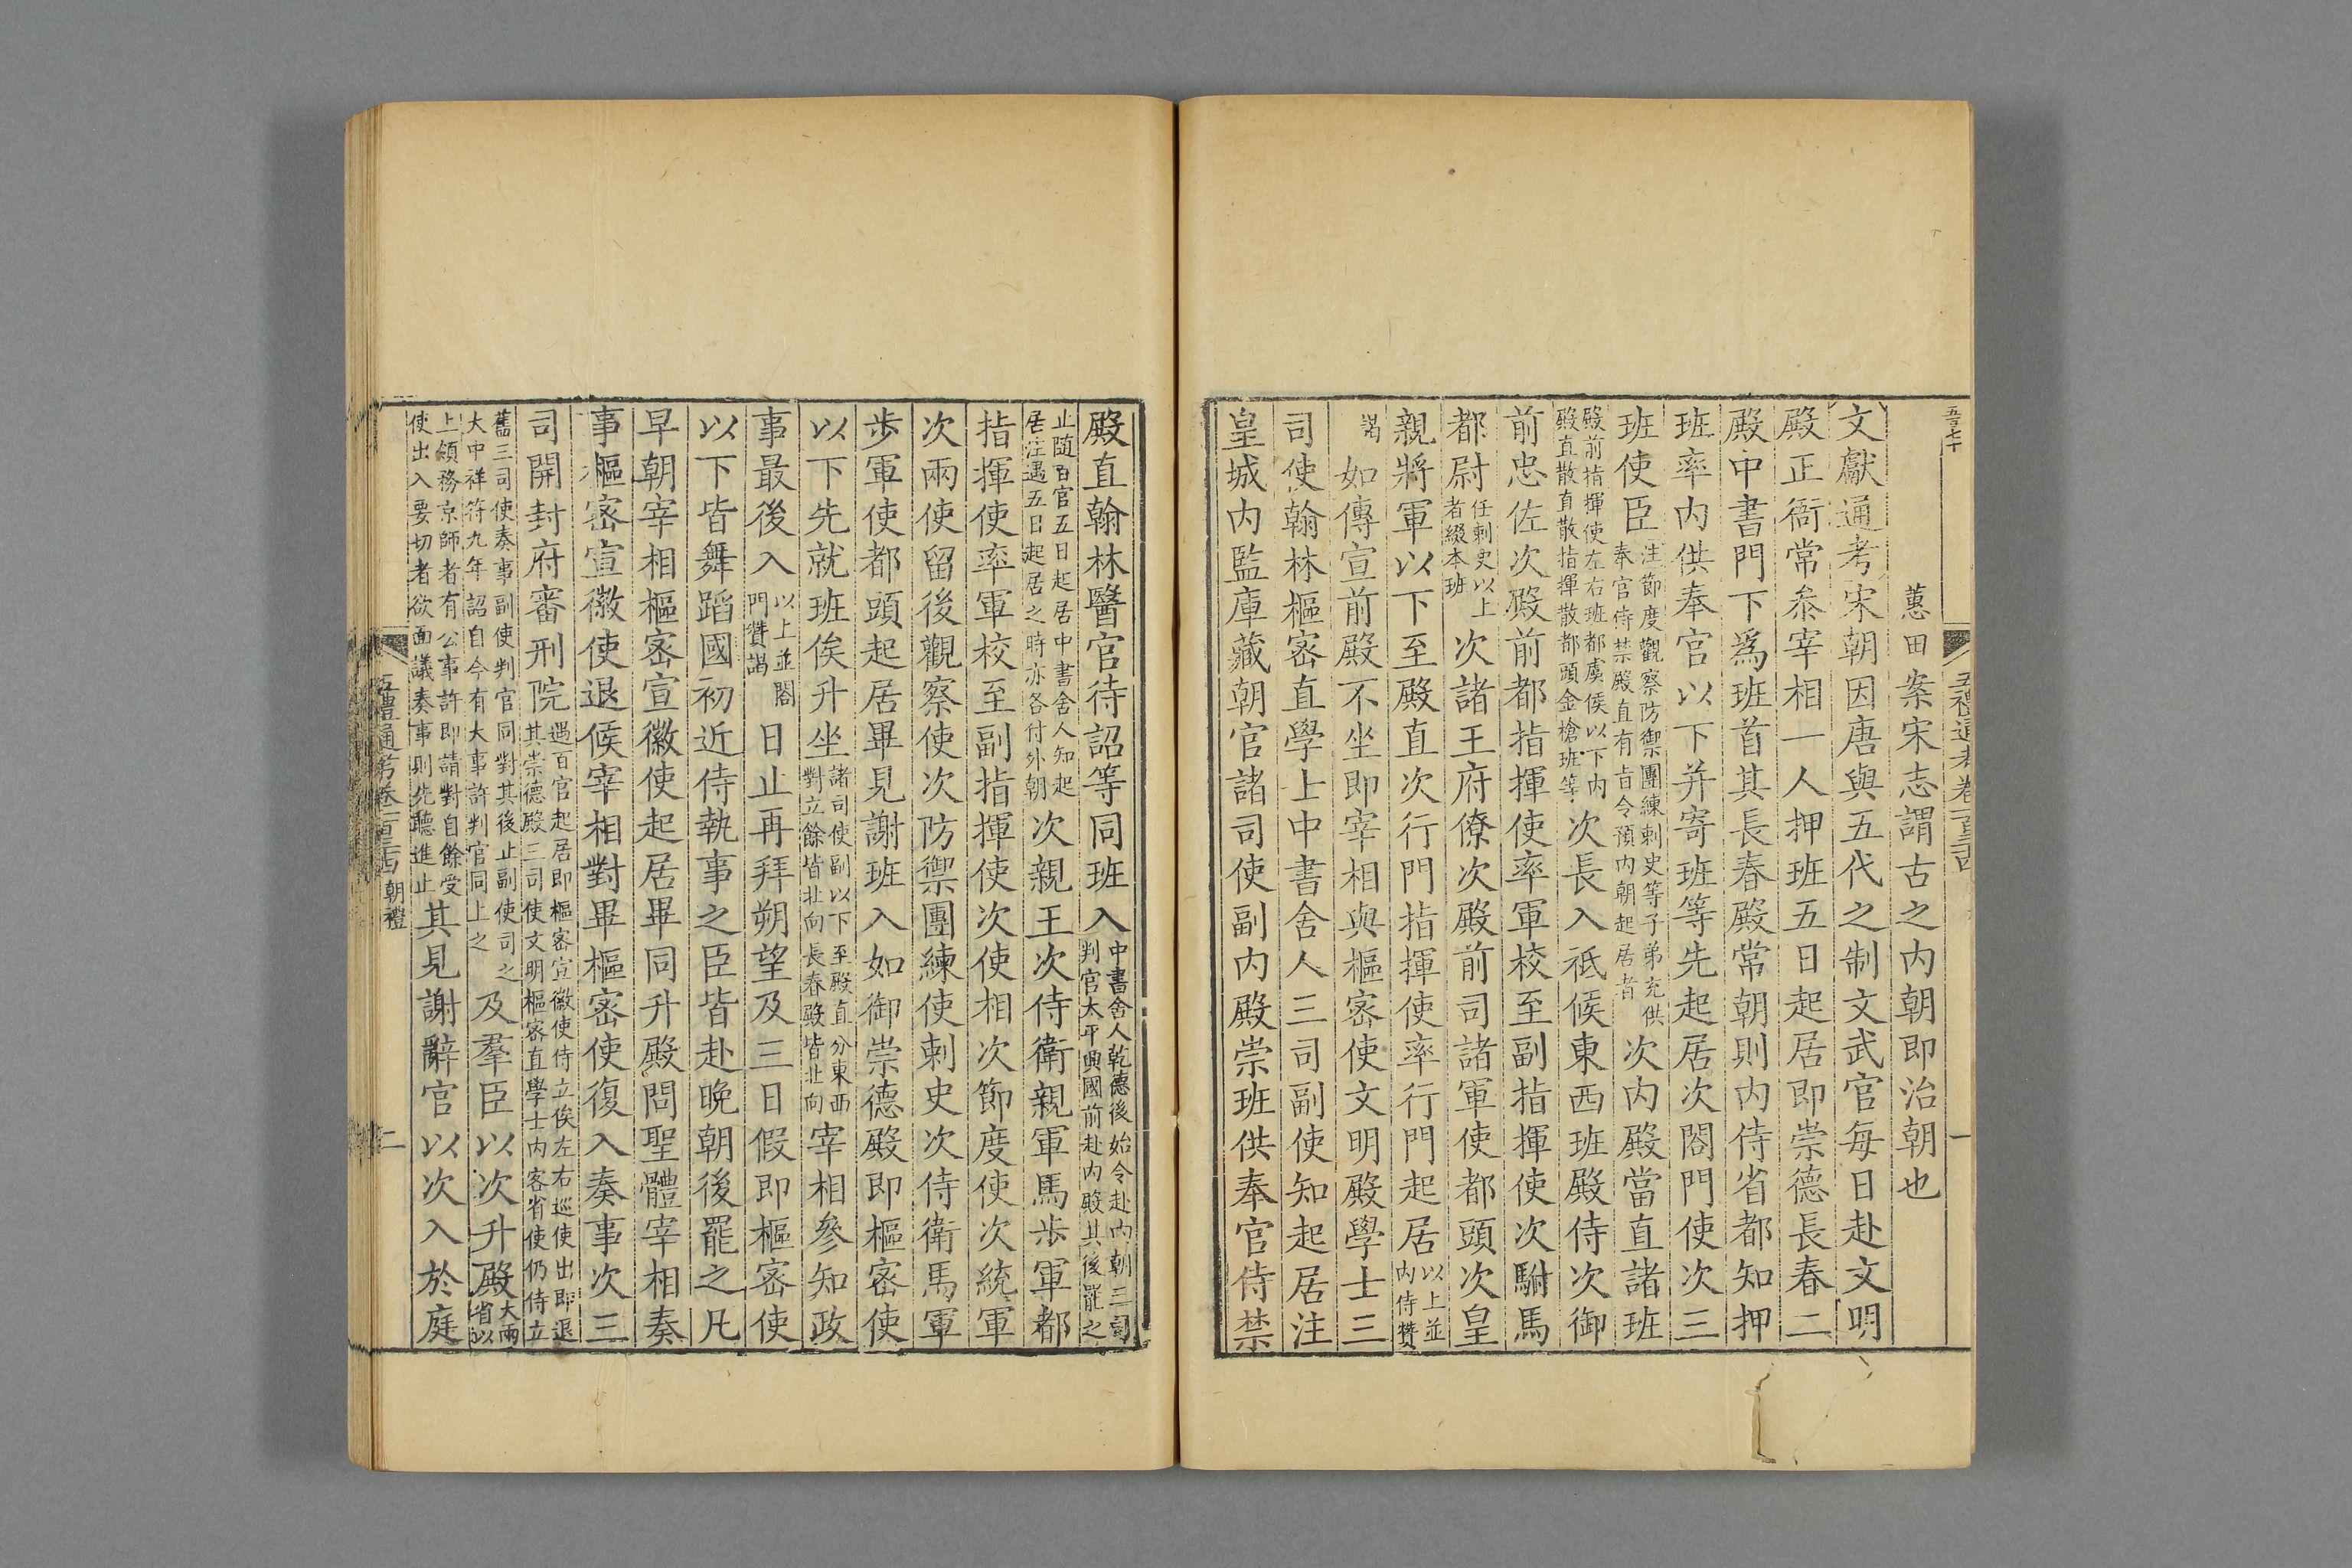 五百七十
五禮通考卷一百三十四
一
蕙田案宋志謂古之内朝即治朝也
文獻通考宋朝因唐與五代之制文武官每日赴文明
殿正衙常叅宰相一人押班五日起居即崇德長春二
殿中書門下爲班首其長春殿常朝則内侍省都知押
班率内供奉官以下并寄班等先起居次閤門使次三
班使臣注節度觀察防禦團練刺史等子弟充供奉官侍禁殿直有旨令預内朝起居者次内殿當直諸班
殿前指揮使左右班都虞侯以下内殿直散直散指揮散都頭金槍班等次長入祗候東西班殿侍次御
前忠佐次殿前都指揮使率軍校至副指揮使次駙馬
都尉任刺史以上者綴本班次諸王府僚次殿前司諸軍使都頭次皇
親將軍以下至殿直次行門指揮使率行門起居以上並内侍贊
謁如傳宣前殿不坐即宰相與樞密使文明殿學士三
司使翰林樞密直學上中書舍人三司副使知起居注
皇城内監庫藏朝官諸司使副内殿崇班供奉官侍禁
殿直翰林醫官待詔等同班入中書舍人乾德後始令赴内朝三司判官太平興國前赴内殿其後罷之
止隨百官五日起居中書舍人知起居注遇五日起居之時亦各付外朝次親王次侍衛親軍馬步軍都
指揮使率軍校至副指揮使次使相次節度使次統軍
次兩使留後觀察使次防禦團練使刺史次侍衛馬軍
步軍使都頭起居畢見謝班入如御崇德殿即樞密使
以下先就班俟升坐諸司使副以下至殿直分東西對立餘皆北向長春殿皆北向宰相參知政
事最後入以上並閤門贊謁日止再拜朔望及三日假即樞密使
以下皆舞蹈國初近侍執事之臣皆赴晩朝後罷之凡
早朝宰相樞密宣徽使起居畢同升殿問聖體宰相奏
事樞密宣徽使退候宰相對畢樞密使復入奏事次三
司開封府審刑院遇百官起居即樞密宣徽使侍立俟左右巡使出即退其崇德殿三司使文明樞密直學士内客省使仍侍立
舊三司使奏事副使判官同對其後止副使司之大中祥符九年詔自今有大事許判官同上之及羣臣以次升殿大兩省以
上領務京師者有公事許即請對自餘受使出入要切者欲面議奏事則先聽進止其見謝辭官以次入於庭
五禮通考卷一百三十四 朝禮
二